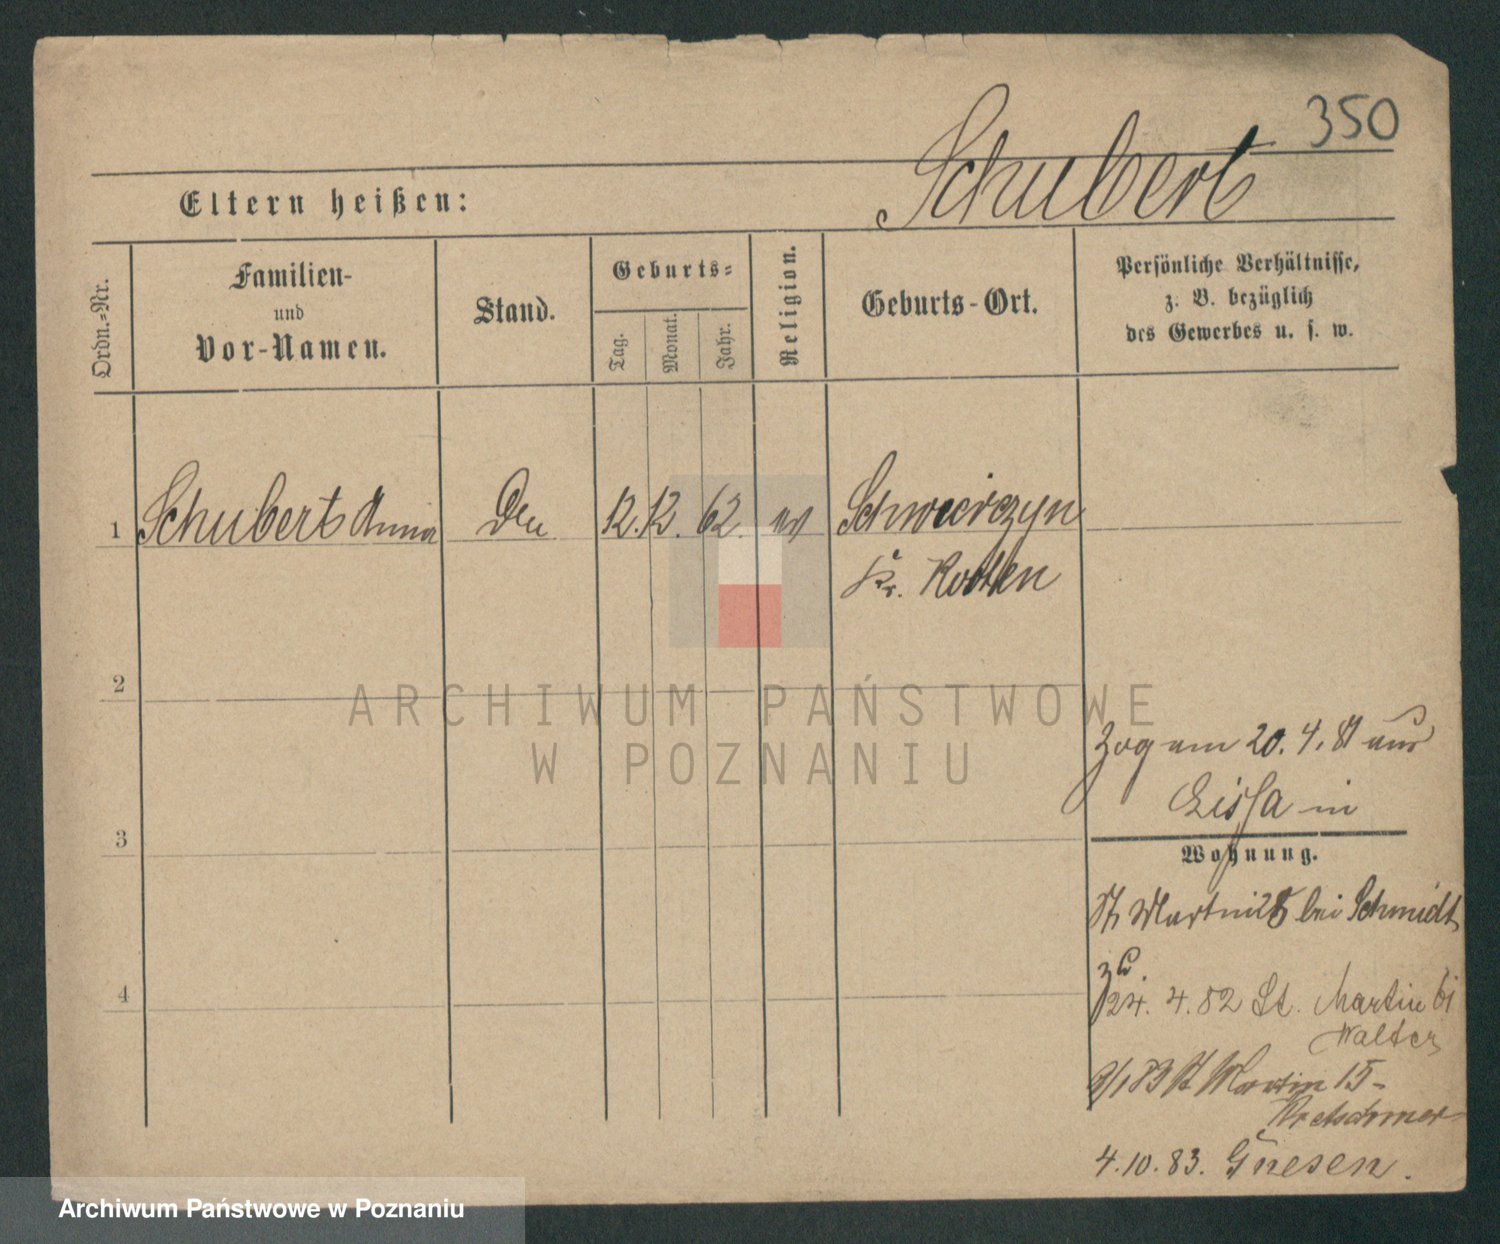 350
Schubert
Eltern heißen:
Ordn.-Nr.
Familien-
und
Vor-Namen.
Stand.
Geburts-
Tag.
Monat.
Jahr.
Religion.
Geburts-Ort.
Persönliche Verhältnisse,
z. B. bezüglich
des Gewerbes u. s. w.
1 Schubert Anna 12. 12. 62. ev Schwierczyn
Kr. Kosten
2
ARCHIWUM PAŃSTWOWE
W POZNANIU
zog am 20. 4. 81 aus
Lissa in
3
Wohnung.
St Martin 28 bei Schmidt
4
24. 4. 82 St. Martin 61
Walter
9/1 83 St Martin 15-
Kretschmer
4. 10. 83. Gnesen.
Archiwum Państwowe w Poznaniu